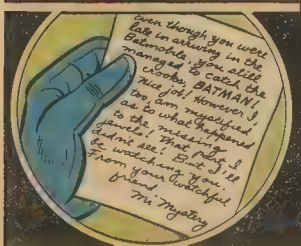 Even though you were
late in arriving in the
Batmobile, you still
managed to catch the
crooks, BATMAN!
Nice job! However, I,
too, am mystified
as to what happened
to the missing
jewels! That part I
didn't see! But I'll
be watching you!
From your watchful
friend
Mr. Mystery